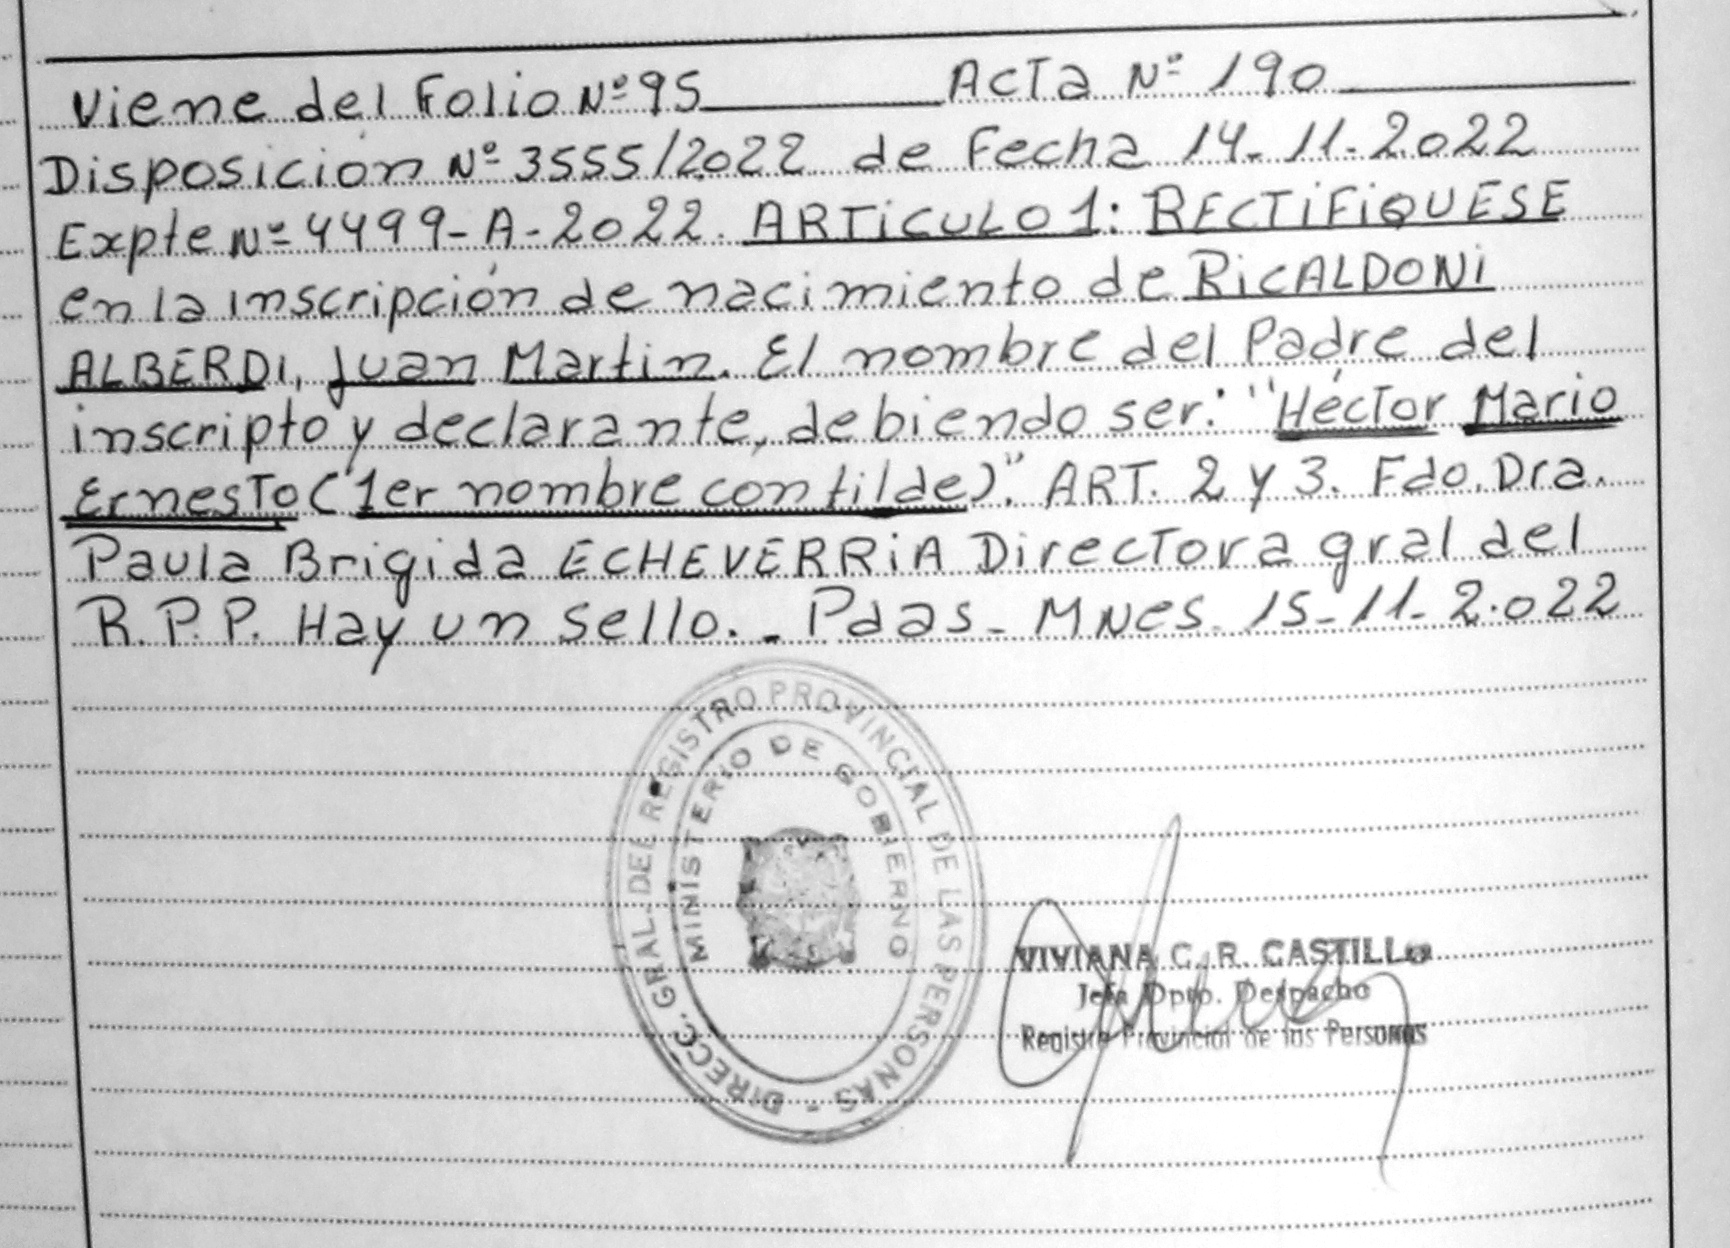 Viene del Folio Nº 95 Acta Nº 190
Disposición Nº 3555/2022 de Fecha 14-11-2022
Expte Nº 4499-A-2022. ARTÍCULO 1: RECTIFIQUESE
en la inscripción de nacimiento de RICALDONI
ALBERDI, Juan Martin. El nombre del Padre del
inscripto y declarante, debiendo ser: "Héctor Mario
Ernesto (1er nombre con tilde)". ART. 2 y 3. Fdo. Dra.
Paula Brigida ECHEVERRiA Directora gral del
R.P.P. Hay un sello.- Pdas- Mnes. 15-11-2.022
DIRECC. GRAL. DEL REGISTRO PROVINCIAL DE LAS PERSONAS -
MINISTERIO DE GOBIERNO
VIVIANA C. R. CASTILLO
Jefa Dpto. Despacho
Registro Provincial de las Personas